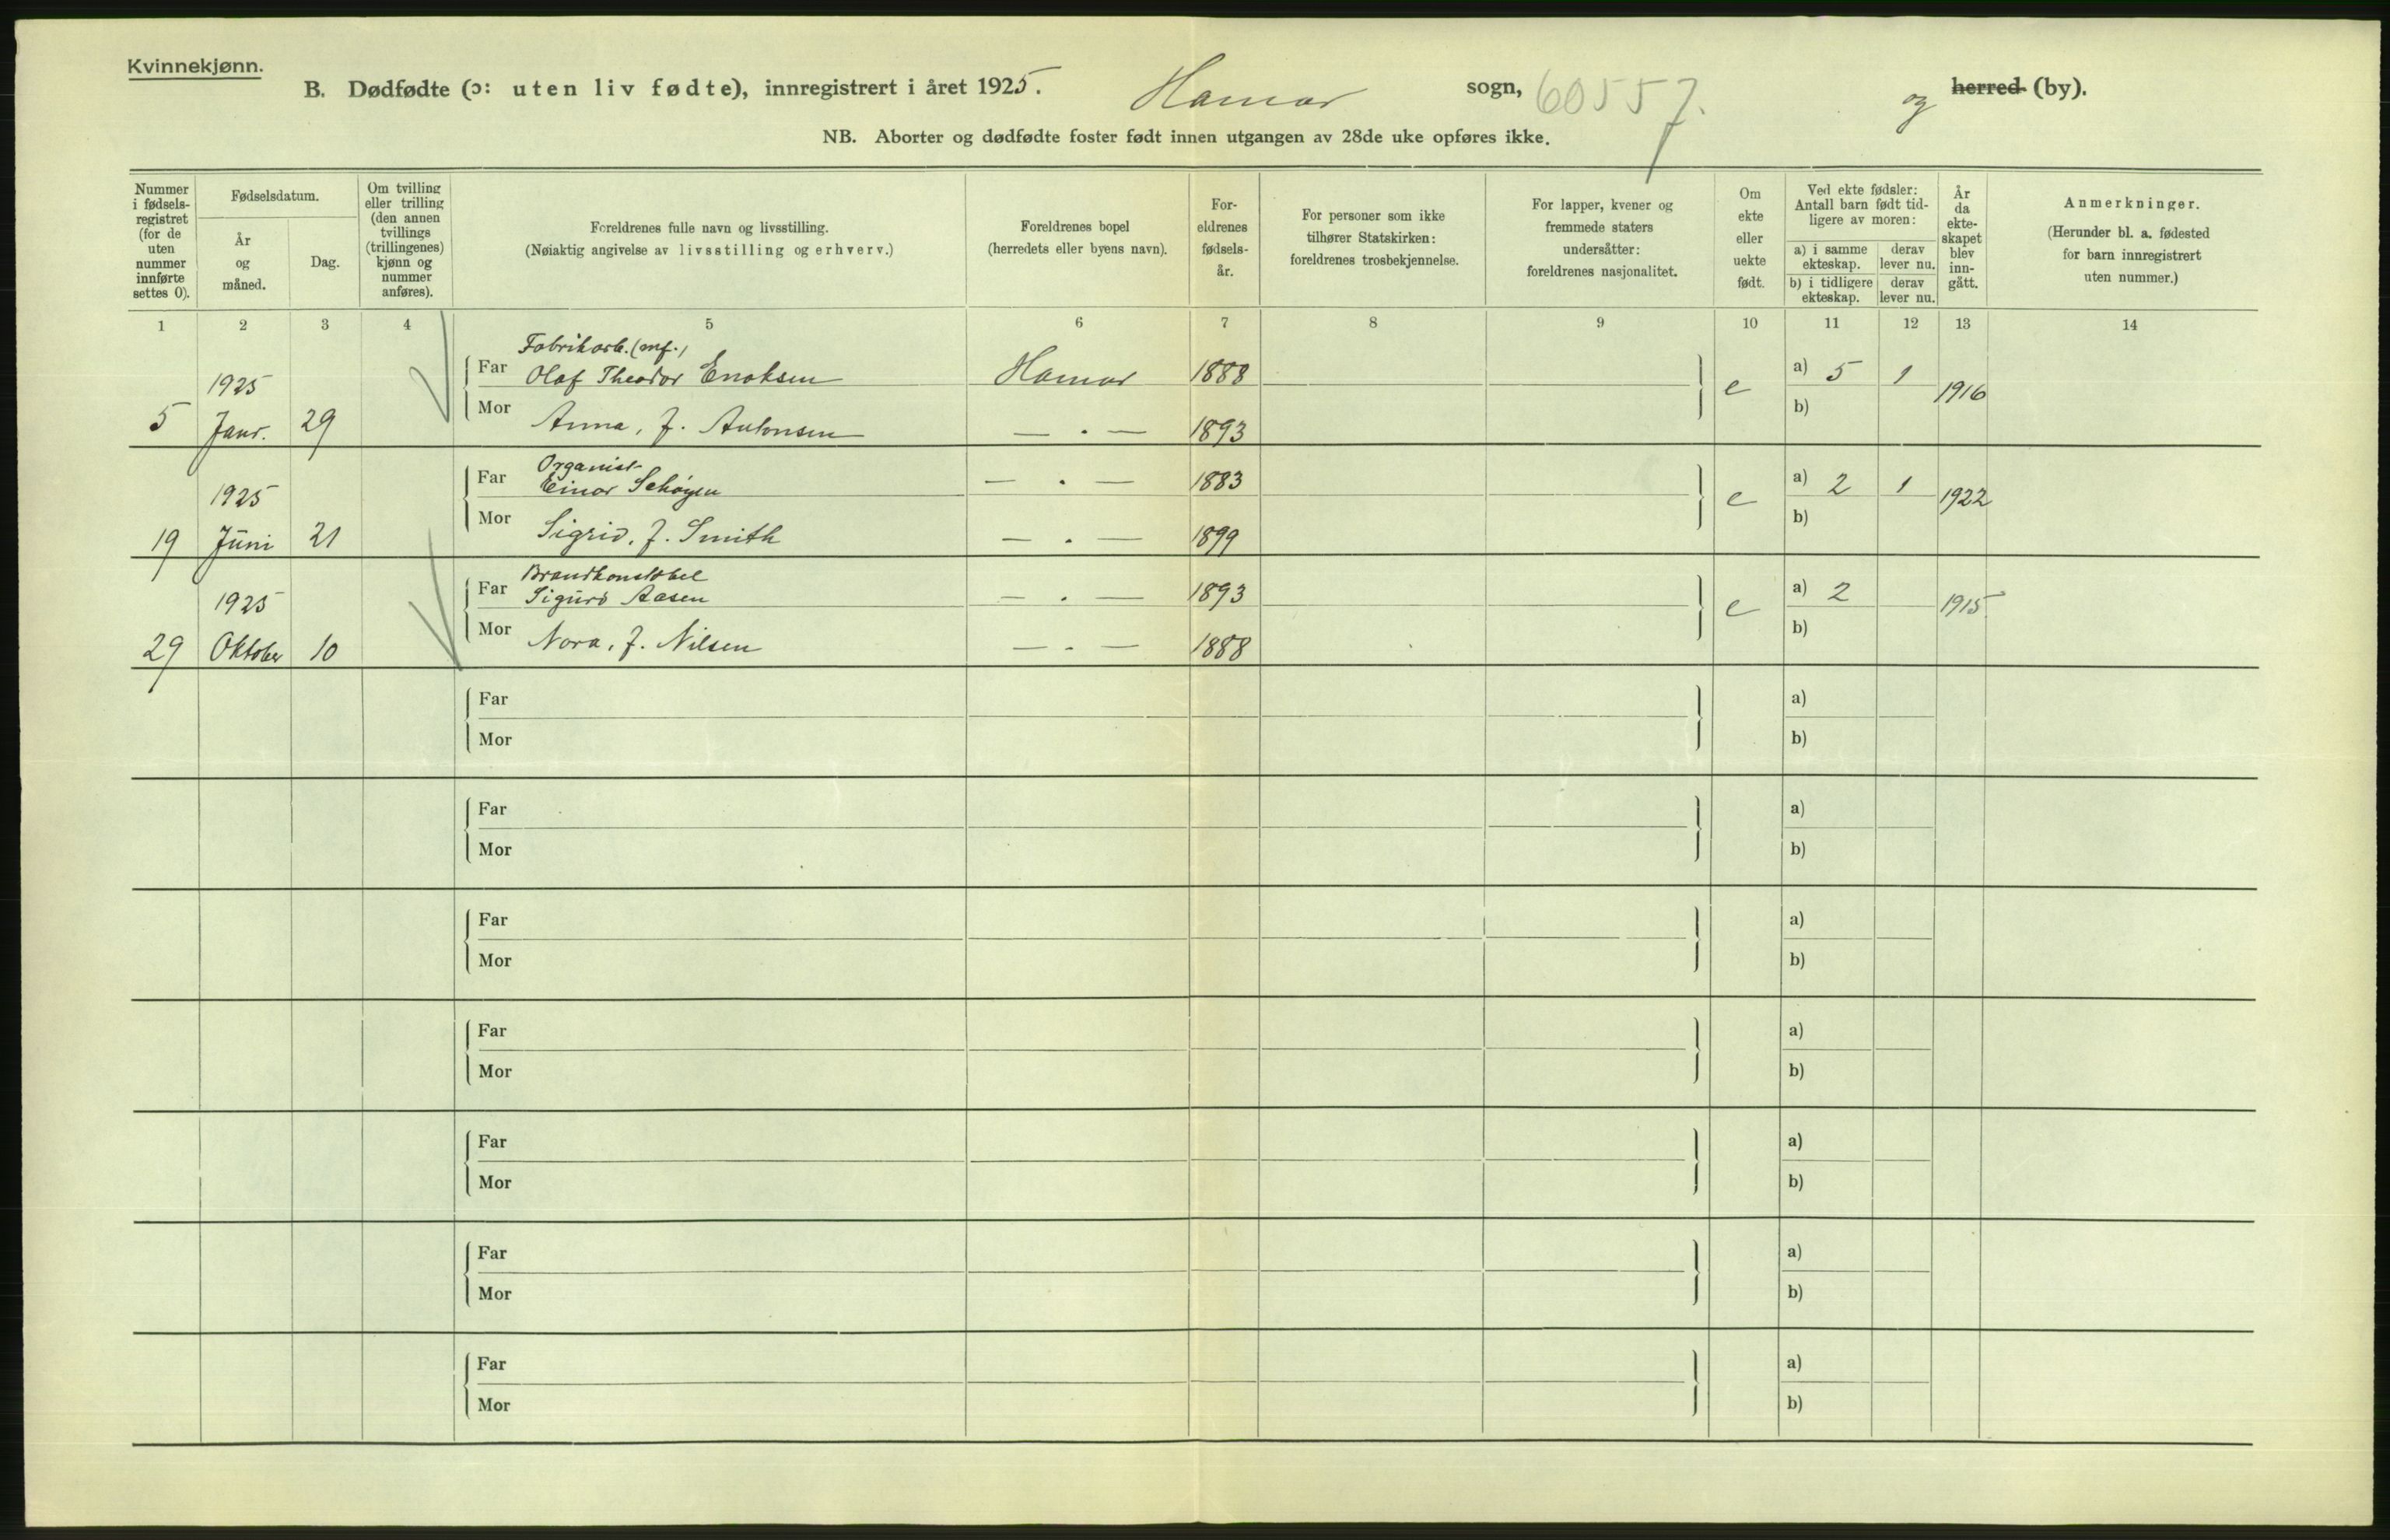 Kvinnekjønn.
B. Dødfødte (ɔ: uten liv fødte), innregistrert i året 1925. Hamar sogn, 60557. og herred (by).
NB. Aborter og dødfødte foster født innen utgangen av 28de uke opføres ikke.
Nummer i fødsels-registret (for de uten nummer innførte settes 0).
Fødselsdatum.
År og måned.
Dag.
Om tvilling eller trilling (den annen tvillings (trillingenes) kjønn og nummer anføres).
Foreldrenes fulle navn og livsstilling.
(Nøiaktig angivelse av livsstilling og erhverv.)
Foreldrenes bopel
(herredets eller byens navn).
For-eldrenes fødsels-år.
For personer som ikke tilhører Statskirken: foreldrenes trosbekjennelse.
For lapper, kvener og fremmede staters undersåtter: foreldrenes nasjonalitet.
Om ekte eller uekte født.
Ved ekte fødsler: Antall barn født tid-ligere av moren:
a) i samme ekteskap. derav lever nu.
b) i tidligere ekteskap. derav lever nu.
År da ekte-skapet blev inn-gått.
Anmerkninger.
(Herunder bl. a. fødested for barn innregistrert uten nummer.)
1 2 3 4 5 6 7 8 9 10 11 12 13 14
Fabrikarb. (mf.)
1925 Far Olaf Theodor Enoksen Hamar 1888 e a) 5 1 1916
5 Janr. 29 Mor Anna, f. Antonsen — . — 1893 b)
Organist
1925 Far Einar Schøyen — . — 1883 e a) 2 1 1922
19 Juni 21 Mor Sigrid, f. Smith — . — 1899 b)
Brandkonstabel
1925 Far Sigurd Aasen — . — 1893 e a) 2 1915
29 Oktober 10 Mor Nora, f. Nilsen — . — 1888 b)
Far a)
Mor b)
Far a)
Mor b)
Far a)
Mor b)
Far a)
Mor b)
Far a)
Mor b)
Far a)
Mor b)
Far a)
Mor b)